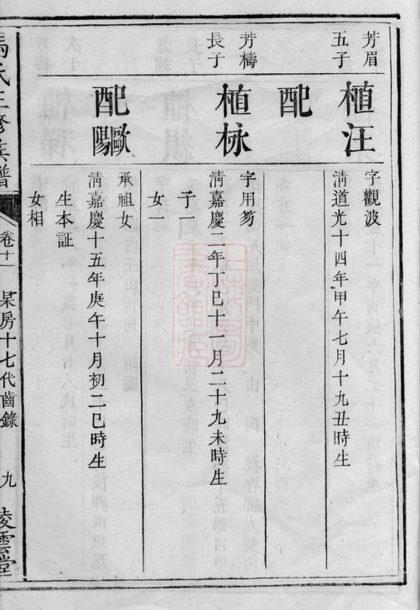 芳眉
五子
植汪
字觀波
清道光十四年甲午七月十九丑時生
配
芳檮
長子
植栐
字用芶
清嘉慶二年丁巳十一月二十九未時生
子一
女一
配歐陽
承祖女
清嘉慶十五年庚午十月初二巳時生
生本証
女相
氏三修族譜
卷十一
杲房十七代齒錄
九
凌雲堂